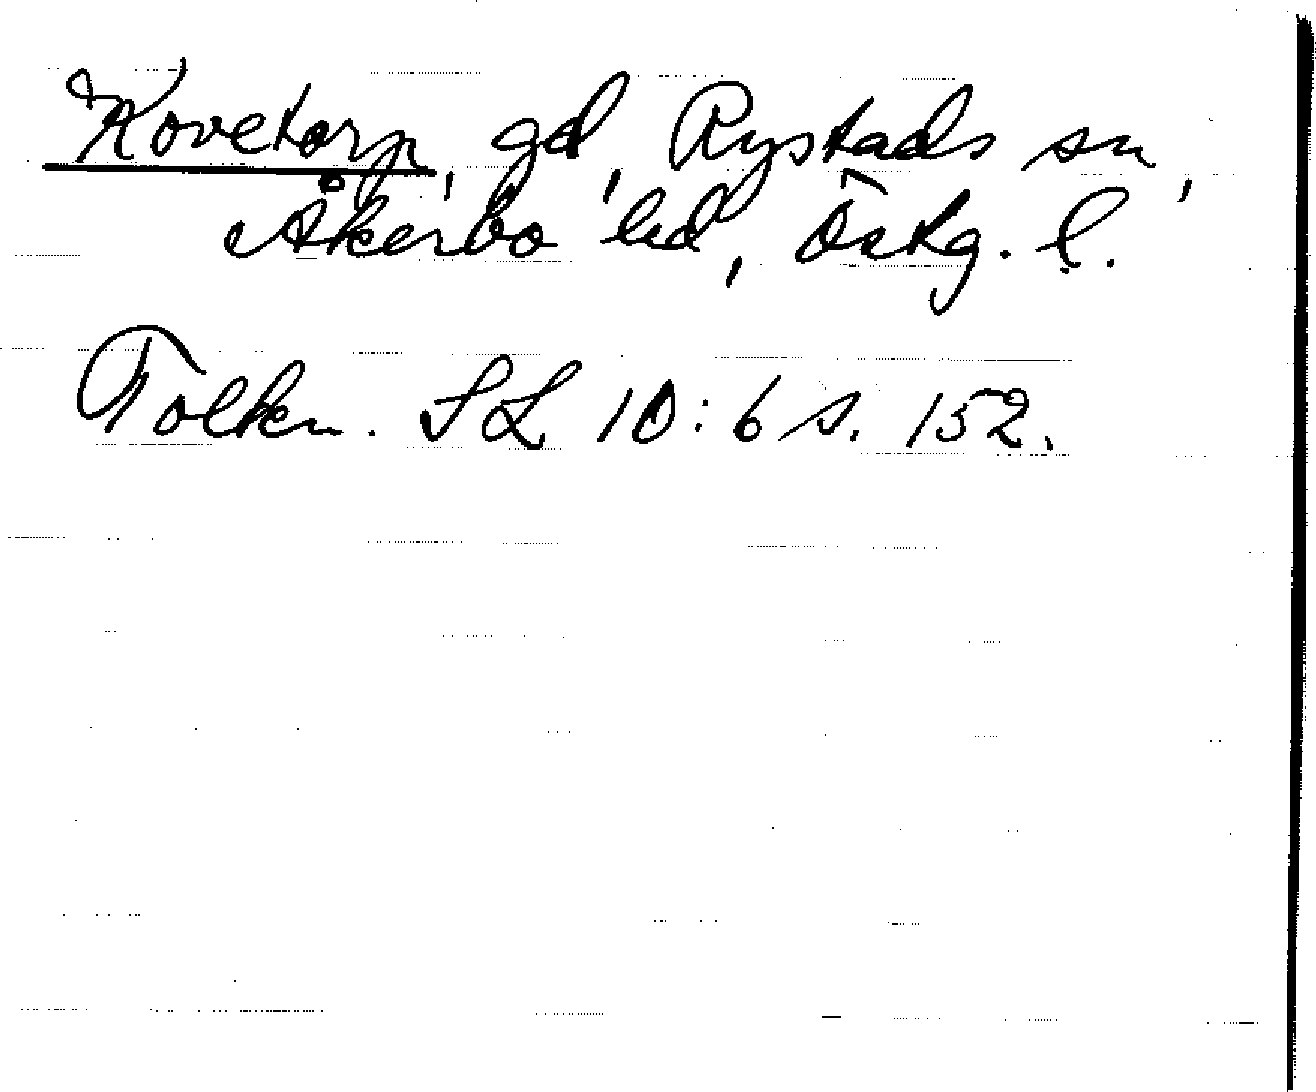 Kovetorp, gd, Rystads sn,
Åkerbo hd, Östg. l.
Tolkn. SL 10:6 s. 152.